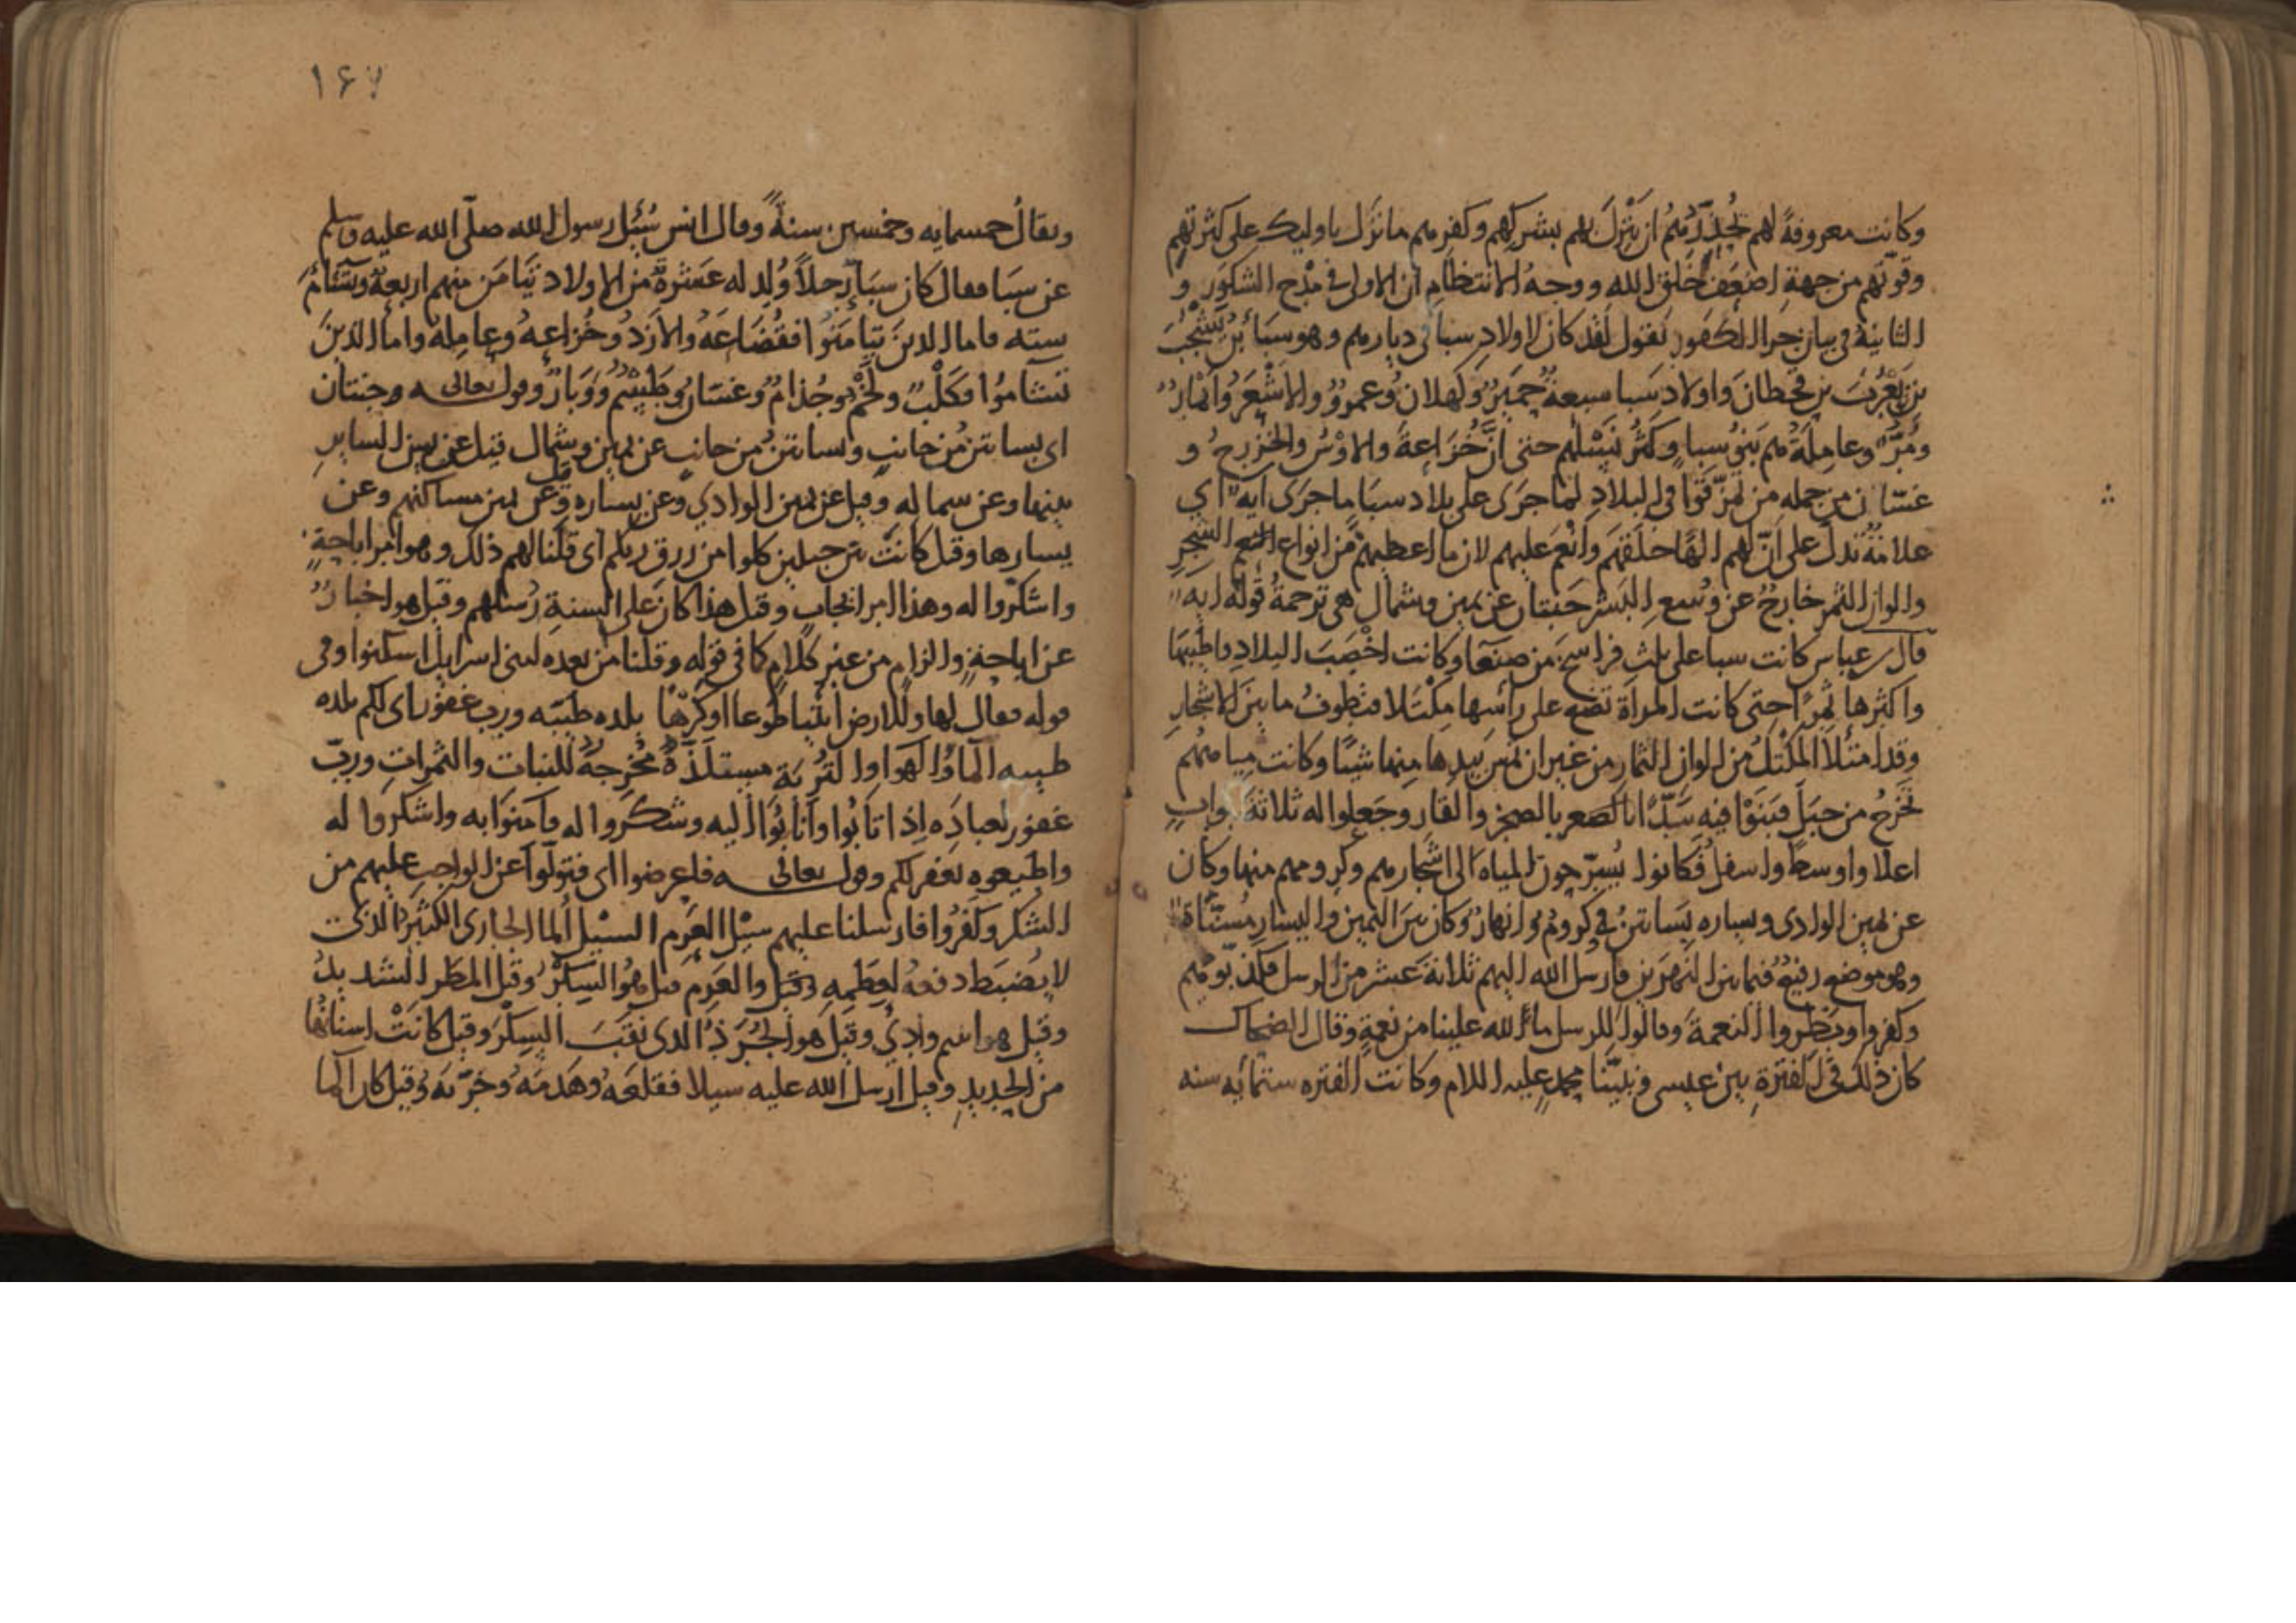 وكانت معروفةً لهم تُحذِّرهُم أن يَنْزِلَ بهم بشركهم وكفرهم ما نزل باوليك على كثرتهم
وقوّتهم من جهة اضعف خَلق الله ووجهُ الانتظام ان الاولى في مدح الشكور و
الثانية في بيان جزا الكفور نقول لقد كان لاولاد سبا في ديارهم وهو سبَأ بن يَشْجُبَ
بن يَعْرُبَ بن قحطان واولاد سَبا سبعة حِمْيَرُ وكهلان وعمرو والاشْعَرُ وأنمارُ
ومُرّ وعامِلَة هم بَنُو سبا وكثُر نَسْلهم حتى انَّ خُزَاعة والاوْسُ والخزرج و
غسّان من جمله من تمزّقوا في البلاد لما جرى على بلاد سبَا ما جرى آيه اي
علامَةٌ تدلّ على أنّ لهم الهًا خلقهم وأنْعَم عليهم لان ما اعطيهم من انواع النعم الشجرِ
والوان الثمر خارجُ عن وُسع البَشر جَنتان عن يمين وشمال هي ترجمةُ قوله ايه
قال ابن عباس كانت سبا على ثلث فراسخ من صنعَا وكانت اخْصَبَ البلاد واطيبَها
واكثرها ثمرًا حتى كانت المرأة تضع على رأسها مِكْتَلا فتطوفُ ما بين الاشجار
وقد امتلأ المكْتلُ من الوان الثمار من غير ان تمسّ بيدِها مِنها شيئًا وكانت مياههُم
تَخرجُ من جبَلَ فبَنَوْا فيه سَدًّا بالصخر والقار وجَعلوا له ثلاثة ابوابٍ
اعلا واوسط واسفل فكانوا يُسرّحون المياه الى اشجارهم وكرومهم منها وكان
عن يمين الوادى ويساره بَساتين في كرومٌ وانهارٌ وكان بين اليمين واليسار مُسَنّاة
وهو موضع رفيعٌ فيما بين النهرين فارسل الله اليهم ثلاثة عشر من الرسل فكذبوهم
وكفروا وبَطَروا النعمة وقالوا للرسل ما لله علينا من نعمةٍ وقال الضحاك
كان ذلك في الفترةِ بين عيسى ونبيّنا محمدٍ عليه السلام وكانت الفتره ستمايه سنه
١٤٧
ويقالُ خمسمايه وخمسين سنةً وقال انس سُئِل رسول الله صلّى الله عليه وسلم
عن سبَا فقال كان سَبَا رجلاً وُلِد له عشرة من الاولاد تَيَامَنَ منهم اربعة وتَشَاَمَ
سته فاما الذين تيَامَنُوا فقُضَاعَةُ والازدُ وخُزاعةُ وعامِلةُ واما الذينَ
تَشَآموا فكَلْبٌ ولَخْمٌ وجُذامٌ وغَسّان وَوَبارٌ وقول تعالى جنتان
اى بساتين من جانب وبساتين من جانب عن يمين وشمال قيل عن يمين الساير
بينها وعن شماله وقيل عن يمين الوادى وعن يساره وقيل عن يمين مساكنهم وعن
يسارها وقيل كانت بين جبلين كلوا من رزق ربكم اى قلنا لهم ذلك وهو امر اباحةٍ
واشكروا له وهذا امر ايجاب وقيل هذا كان على السنةِ رُسلهم وقيل هو اخبارٌ
عن اباحةٍ والزام من غير كلام كما في قوله وقلنا من بعده لبنى اسرائيل اسكنوا وفى
قوله فقال لها وللارض ائتيا طوعا او كرْهًا بلده طيبه ورب غفور اى لكم بلده
طيبه الماءُ الهوا والتربَة مستلَذّة مُخرجةٌ للنبات والثمراتِ وربّ
غفور لعبادَه اِذا تابُوا وانابُوا اليه وشكروا له فآمنوا به واشكروا له
واطيعوه يغفر لكم وقول تعالى فاعرضوا اى فتولّوا عن الواجب عليهم من
الشكر وكفَرُوا فارسلنا عليهم سيْل العَرِم السيْل الما الجارى الكثير الذى
لا يُضبَط دفعه لعظمه وقيل والعرِم قيل هُو السِكْرُ وقيل المطر الشديدُ
وقيل هو اسم وادِيٍ وقيل هو الجُرَذُ الذى نَقَبَ السِكْرَ وقيل كانَتْ اسنانُها
من الحديدِ وقيل ارسل الله عليه سيلا فقلعَهُ وهَدمَهُ وخرّبهُ وقيل كان الما